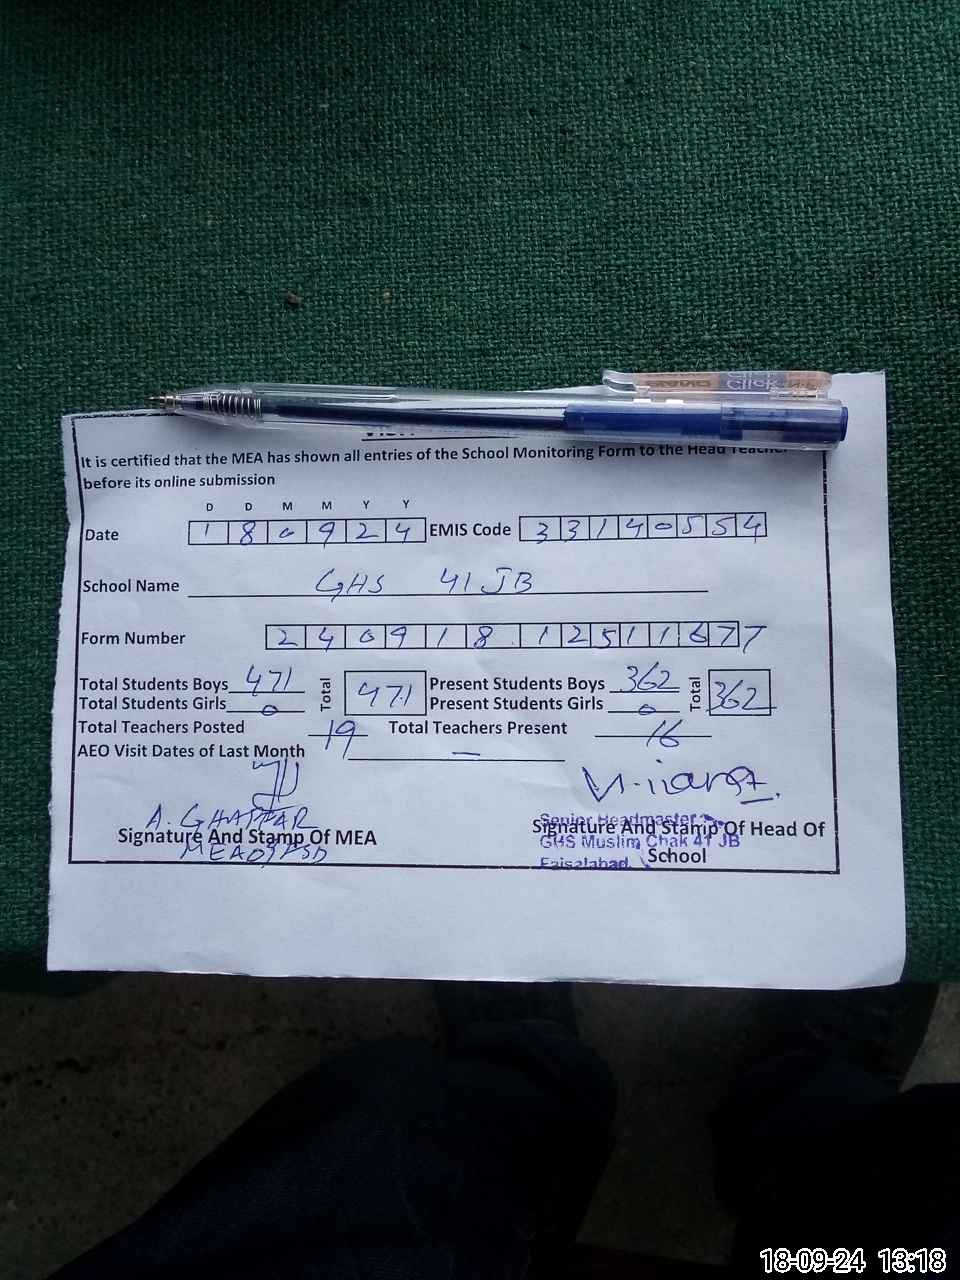 Click
It is certified that the MEA has shown all entries of the School Monitoring Form to the Head Teacher
before its online submission
D D M M Y Y
Date 1 8 0 9 2 4 EMIS Code 3 3 1 4 0 5 5 4
School Name GHS 41 JB
Form Number 2 4 0 9 1 8 1 2 5 1 1 6 7 7
Total Students Boys 471 Total 471 Present Students Boys 362 Total 362
Total Students Girls 0 Present Students Girls 0
Total Teachers Posted 19 Total Teachers Present 16
AEO Visit Dates of Last Month —
A. GHAFFAR
Signature And Stamp Of MEA
Senior Headmaster
Signature And Stamp Of Head Of
School
GHS Muslim Chak 41 JB
Faisalabad
18-09-24 13:18